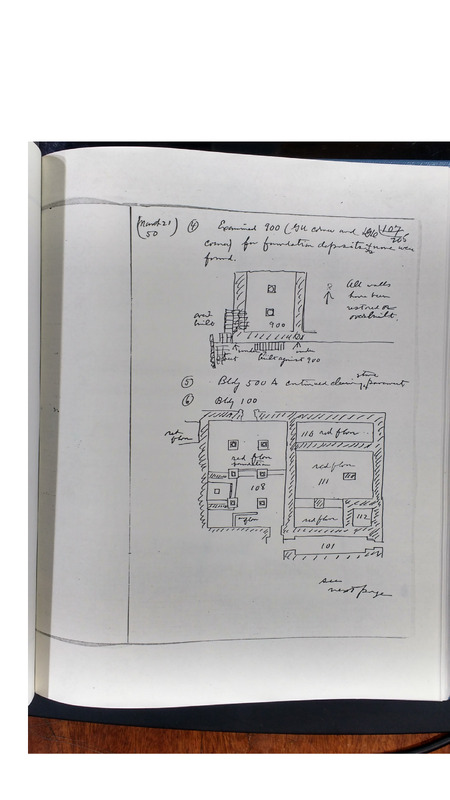 (March 21
50)
④ Examined 900 (SW corner and 107
205
corner) for foundation deposits; none were
found.
over
built
900
under
built against 900
under
All walls
have been
restored or
overbuilt.
⑤ Bldg 500 A continued clearing stone pavement
⑥ Bldg 100
red
floor
red floor
foundation
108
floor
110 red floor
red floor
111
red floor
112
101
see
next page